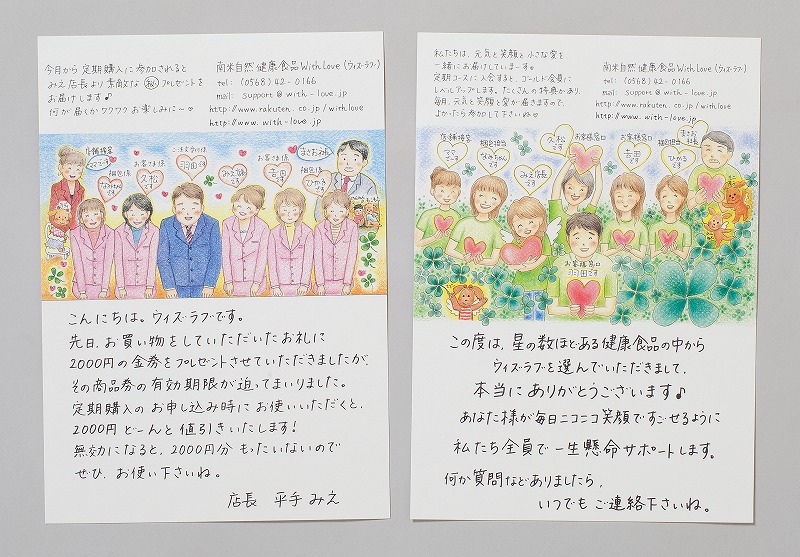 今月から 定期購入に参加されると
みえ店長より 素敵な ㊙ プレゼントを
お届けします♪
何が届くかワクワク お楽しみに〜♡
南米自然健康食品With Love (ウィズ・ラブ)
tel: (0568) 42-0166
mail: support@with-love.jp
http://www.rakuten.co.jp/withlove
http://www.with-love.jp
店舗接客
ママです
梱包係
なみちゃんです
お客さま係
久松です
ご注文受付係
羽田です
みえ店長です
お客さま係
吉田です
梱包係
ひかるです
まさお社長
こんにちは。ウィズ・ラブです。
先日、お買い物をしていただいたお礼に
2000円の金券をプレゼントさせていただきましたが、
その商品券の有効期限が迫ってまいりました。
定期購入の お申し込み時に お使いいただくと、
2000円 どーんと 値引きいたします!
無効になると、2000円分 もったいないので
ぜひ、お使い下さいね。
店長 平手 みえ
私たちは、元気と笑顔と小さな愛を
一緒にお届けしていまーす。
定期コースに入会すると、ゴールド会員に
レベルアップします。たくさんの特典があり、
毎月、元気と笑顔と愛が届きますので、
よかったら参加して下さいね♡
南米自然健康食品With Love (ウィズ・ラブ)
tel: (0568) 42-0166
mail: support@with-love.jp
http://www.rakuten.co.jp/withlove
http://www.with-love.jp
店舗接客
ママです
梱包担当
なみちゃんです
みえ店長です
久松です
お客様窓口
お客様窓口
吉田です
梱包担当
ひかるです
まさお社長です
お客様窓口
羽田です
この度は、星の数ほどある健康食品の中から
ウィズ・ラブを選んでいただきまして、
本当に ありがとうございます♪
あなた様が毎日ニコニコ笑顔ですごせるように
私たち全員で一生懸命サポートします。
何か質問などありましたら、
いつでも ご連絡下さいね。